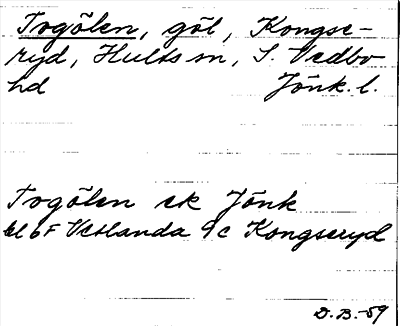 Togölen, göl, Kongse-
ryd, Hults sn, S. Vedbo
hd Jönk. l.
Togölen ek Jönk
bl 6F Vetlanda 9c Kongseryd
D.B.-59